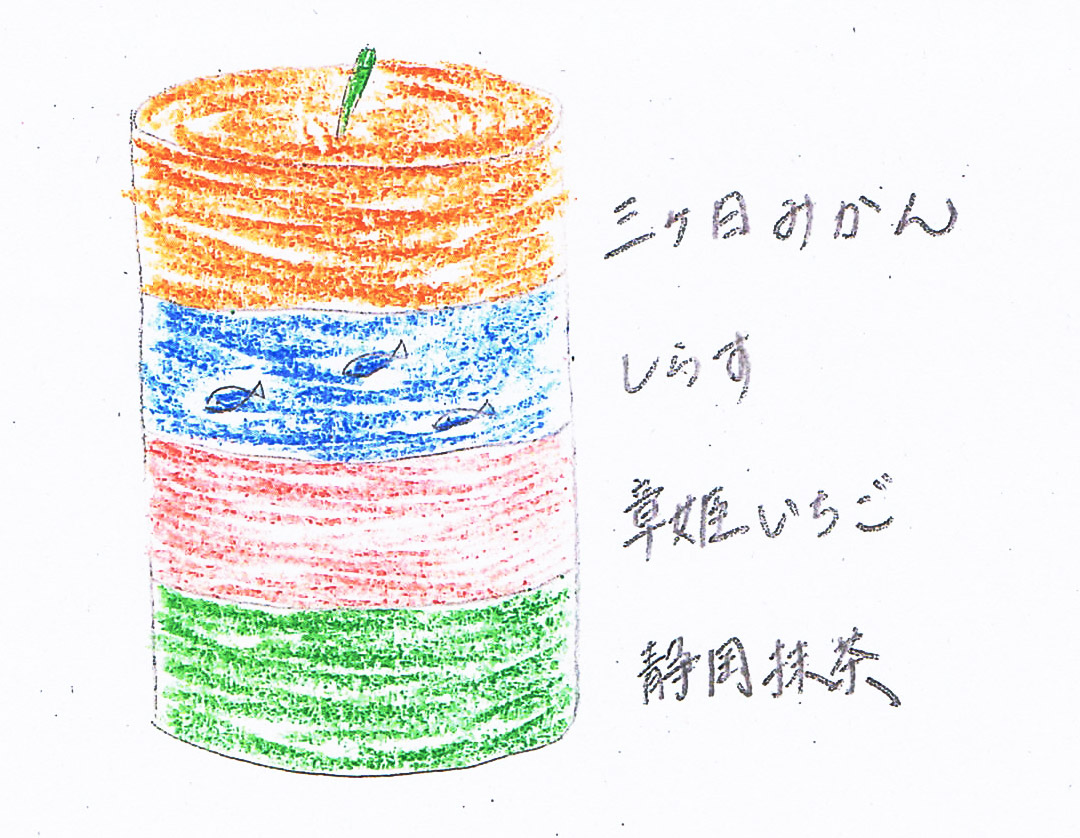 三ヶ日みかん
しらす
章姫いちご
静岡抹茶